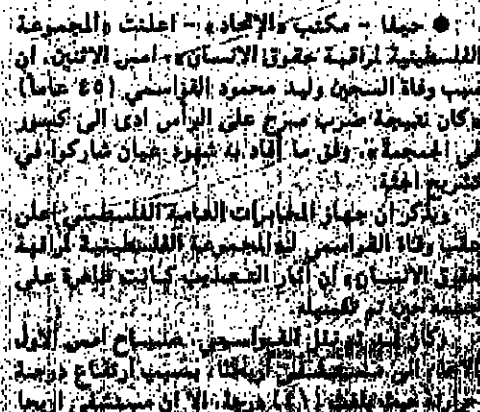 ● حيفا - مكتب «الإتحاد» - اعلنت «المجموعة
الفلسطينية لمراقبة حقوق الانسان» امس الاثنين، ان
سبب وفاة السجين وليد محمود القواسمي (٤٥ عاماً)
«كان نتيجة ضرب مبرح على الرأس ادى الى كسور
في الجمجمة»، وفق ما أفاد به شهود عيان شاركوا في
تشريح الجثة.
ويذكر ان جهاز المخابرات العامة الفلسطيني اعلن
وفاة القواسمي المجموعة الفلسطينية لمراقبة
حقوق الانسان، ان آثار التعذيب كانت ظاهرة على
حين تم
وكان قد تم نقل القواسمي صباح امس الأول
الاحد الى مستشفى أريحا، بسبب ارتفاع درجة
حرارته حيث بلغت درجة، الا ان مستشفى اريحا